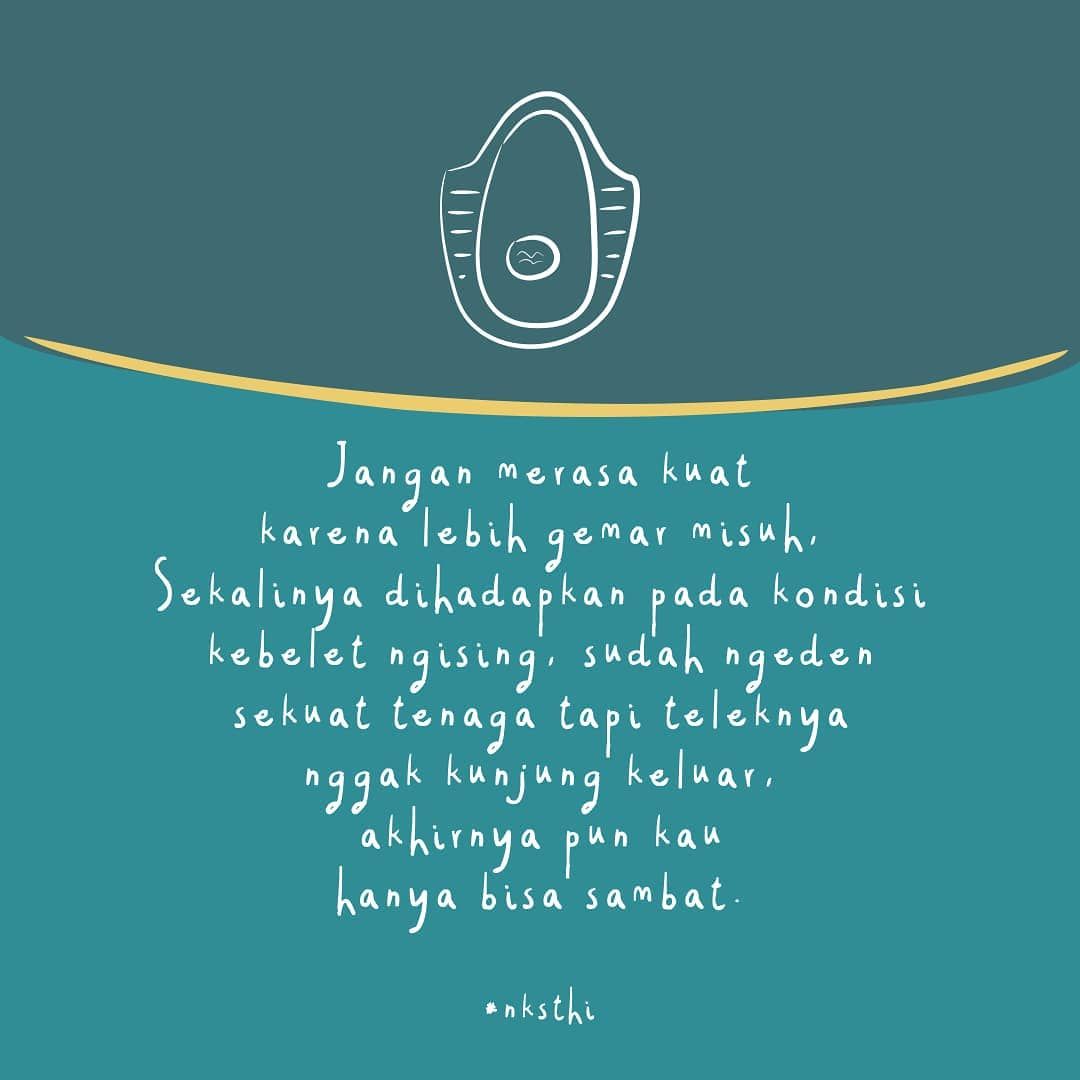 Jangan merasa kuat
karena lebih gemar misuh,
Sekalinya dihadapkan pada kondisi
kebelet ngising, sudah ngeden
sekuat tenaga tapi teleknya
nggak kunjung keluar,
akhirnya pun kau
hanya bisa sambat.
#nksthi